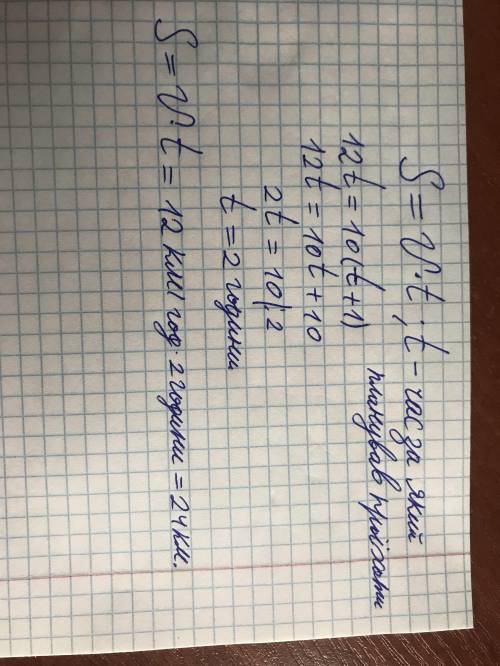 S = V · t ; t - час за який
планував проїхати
12t = 10(t + 1)
12t = 10t + 10
2t = 10 | 2
t = 2 години
S = V · t = 12 км/год · 2 години = 24 км.